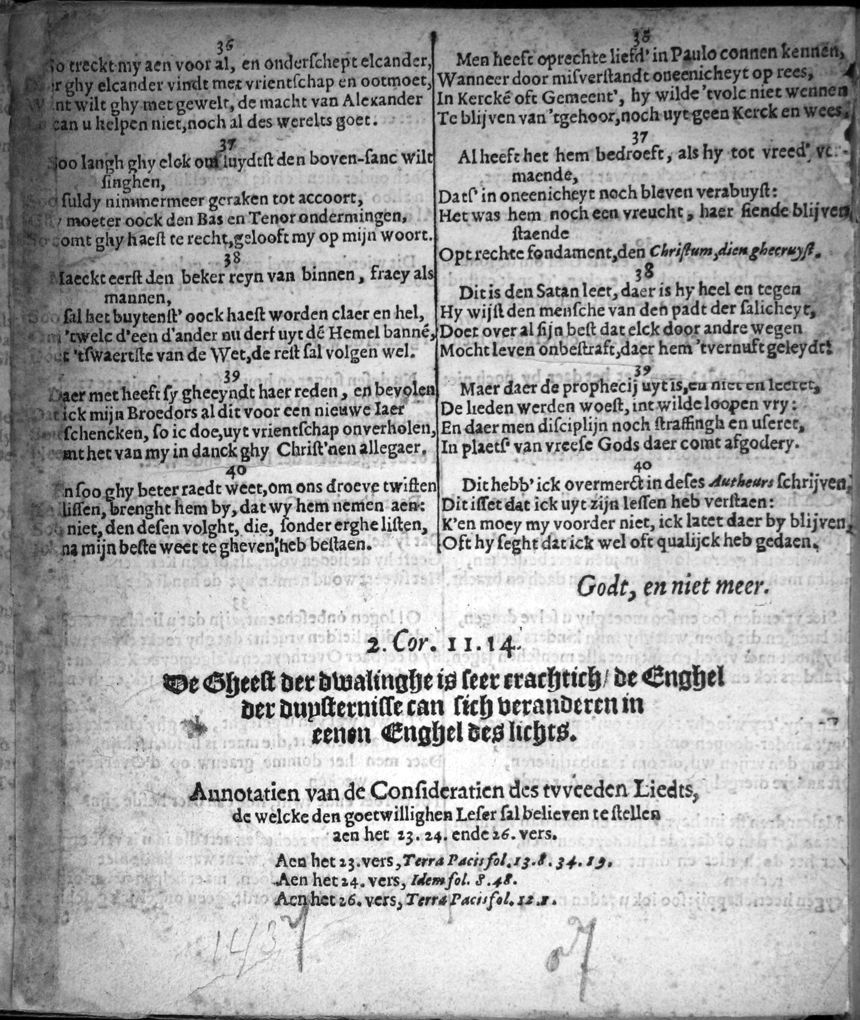 36
So treckt my aen voor al, en onderschept elcander,
ghy elcander vindt met vrientschap en ootmoet,
wilt ghy met gewelt, de macht van Alexander
can u helpen niet, noch al des werelts goet.
37
Soo langh ghy elck om luydtst den boven-sanc wilt
singhen,
suldy nimmermeer geraken tot accoort,
moeter oock den Bas en Tenor ondermingen,
comt ghy haest te recht, gelooft my op mijn woort.
38
Maeckt eerst den beker reyn van binnen, fraey als
mannen,
sal het buytenst' oock haest worden claer en hel,
'twelc d'een d'ander nu derf uyt dē Hemel bannē,
'tswaertste van de Wet, de rest sal volgen wel.
39
Daer met heeft sy gheeyndt haer reden, en bevolen
ick mijn Broedors al dit voor een nieuwe Iaer
schencken, so ic doe, uyt vrientschap onverholen,
het van my in danck ghy Christ'nen allegaer.
40
En soo ghy beter raedt weet, om ons droeve twisten
lissen, brenght hem by, dat wy hem nemen aen:
niet, den desen volght, die, sonder erghe listen,
na mijn beste weet te gheven, heb bestaen.
36
Men heeft oprechte liefd' in Paulo connen kennen,
Wanneer door misverstandt oneenicheyt op rees,
In Kercke oft Gemeent', hy wilde 'tvolc niet wennen
Te blijven van 'tgehoor, noch uyt geen Kerck en wees.
37
Al heeft het hem bedroeft, als hy tot vreed' ver-
maende,
Dats' in oneenicheyt noch bleven verabuyst:
Het was hem noch een vreucht, haer siende blijven
staende
Opt rechte fondament, den Christum, dien ghecruyst.
38
Dit is den Satan leet, daer is hy heel en tegen
Hy wijst den mensche van den padt der salicheyt,
Doet over al sijn best dat elck door andre wegen
Mocht leven onbestraft, daer hem 'tvernuft geleydt:
39
Maer daer de prophecij uyt is, en niet en leeret,
De lieden werden woest, int wilde loopen vry:
En daer men disciplijn noch straffingh en useret,
In plaets' van vreese Gods daer comt afgodery.
40
Dit hebb' ick overmerckt in deses Autheurs schrijven,
Dit isset dat ick uyt zijn lessen heb verstaen:
K'en moey my voorder niet, ick latet daer by blijven,
Oft hy seght dat ick wel oft qualijck heb gedaen.
Godt, en niet meer.
2. Cor. 11. 14.
De Gheest der dwalinghe is seer crachtich/ de Enghel
der duysternisse can sich veranderen in
eenen Enghel des lichts.
Annotatien van de Consideratien des tvveeden Liedts,
de welcke den goetwillighen Leser sal believen te stellen
aen het 23. 24. ende 26. vers.
Aen het 23. vers, Terra Pacis fol. 13. 8. 34. 19.
Aen het 24. vers, Idem fol. 8. 48.
Aen het 26. vers, Terra Pacis fol. 12. 1.